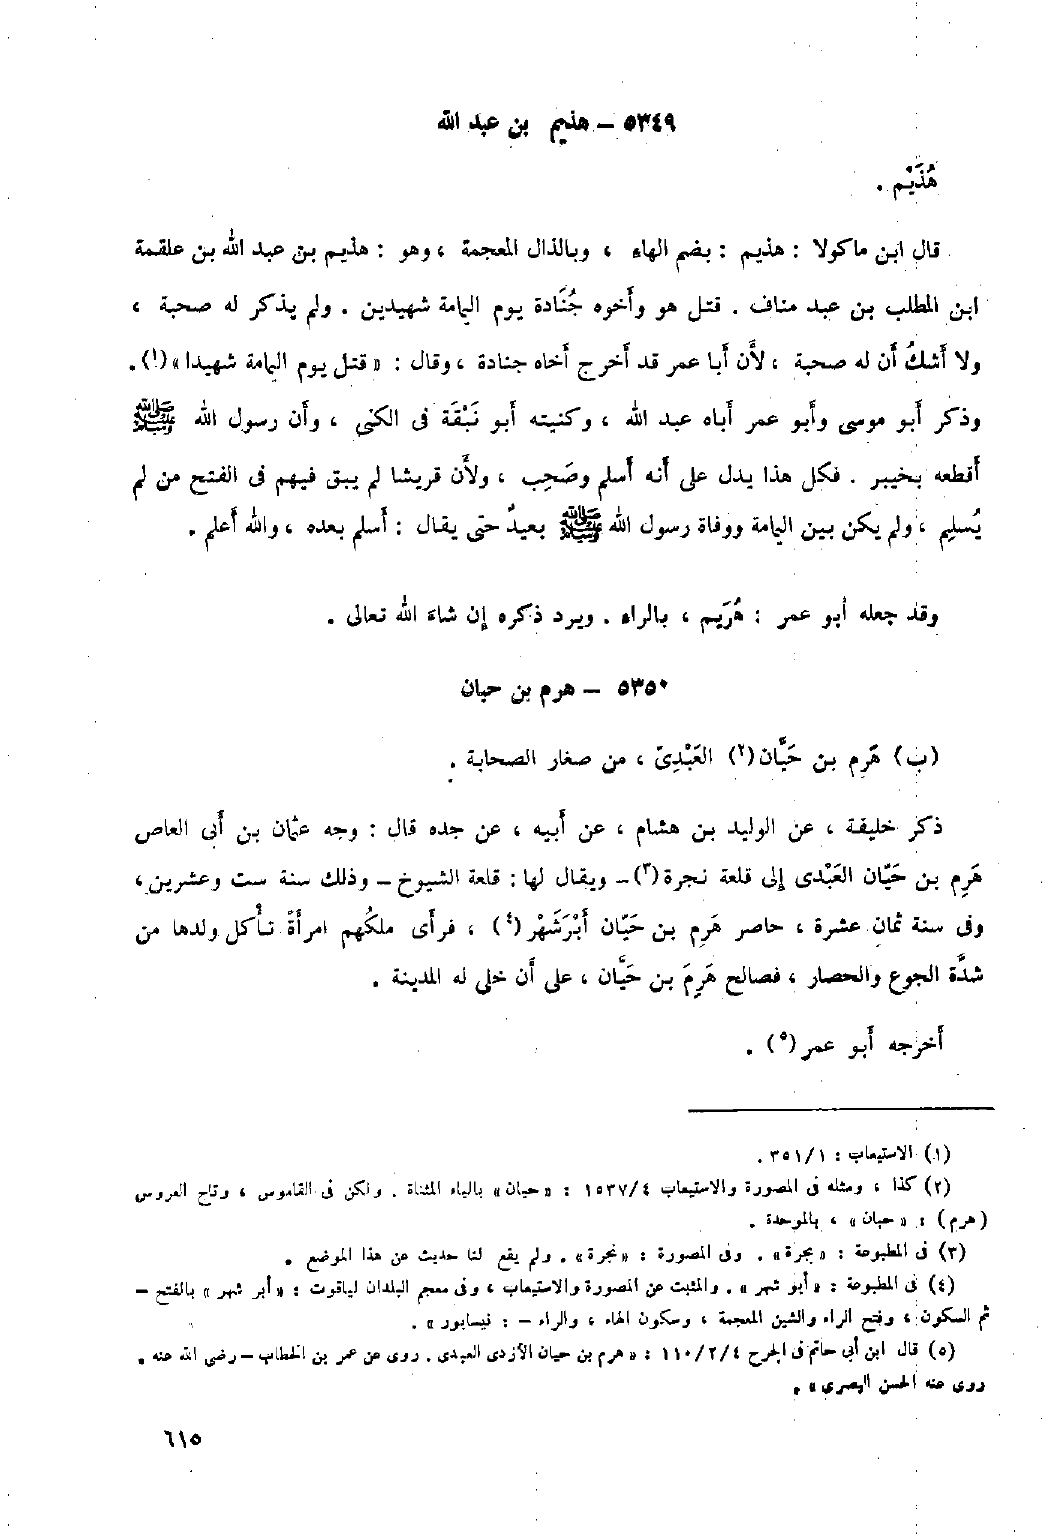 ٥٣٤٩ – هذيم بن عبد الله
هُذَيْم .
قال ابن ماكولا : هذيم : بضم الهاء ، وبالذال المعجمة ، وهو : هذيم بن عبد الله بن علقمة
ابن المطلب بن عبد مناف . قتل هو وأخوه جُنَادة يوم اليمامة شهيدين . ولم يذكر له صحبة ،
ولا أشكُ أن له صحبة ، لأن أبا عمر قد أخرج أخاه جنادة ، وقال : « قتل يوم اليمامة شهيدا » (١) .
وذكر أبو موسى وأبو عمر أباه عبد الله ، وكنيته أبو نَبْقَة فى الكنى ، وأن رسول الله ﷺ
أقطعه بخيبر . فكل هذا يدل على أنه أسلم وصَحِب ، ولأن قريشا لم يبق فيهم فى الفتح من لم
يُسلِم ، ولم يكن بين اليمامة ووفاة رسول الله ﷺ بعيدٌ حتى يقال : أسلم بعده ، والله أعلم .
وقد جعله أبو عمر : هُرَيم ، بالراء . ويرد ذكره إن شاء الله تعالى .
٥٣٥٠ – هرم بن حيان
(ب) هَرِم بن حَيَّان(٢) العَبْدِىّ ، من صغار الصحابة .
ذكر خليفة ، عن الوليد بن هشام ، عن أبيه ، عن جده قال : وجه عثمان بن أبى العاص
هَرِم بن حَيّان العَبْدى إلى قلعة نجرة(٣) – ويقال لها : قلعة الشيوخ – وذلك سنة ست وعشرين ،
وفى سنة ثمان عشرة ، حاصر هَرِم بن حَيّان أَبْرَشَهْر (٤) ، فرأى ملكُهم امرأةً تأكل ولدها من
شدَّة الجوع والحصار ، فصالح هَرِمَ بن حَيَّان ، على أن خلى له المدينة .
أخرجه أبو عمر (٥) .
(١) الاستيعاب : ٣٥١/١ .
(٢) كذا ، ومثله فى المصورة والاستيعاب ١٥٣٧/٤ : « حيان » بالياء المثناة . ولكن فى القاموس ، وتاج العروس
(هرم) : « حبان » ، بالموحدة .
(٣) فى المطبوعة : « بجرة » . وفى المصورة : « نجرة » . ولم يقع لنا حديث عن هذا الموضع .
(٤) فى المطبوعة : « أبو شهر » . والمثبت عن المصورة والاستيعاب ، وفى معجم البلدان لياقوت : « أبر شهر » بالفتح –
ثم السكون ، وفتح الراء والشين المعجمة ، وسكون الهاء ، والراء – : نيسابور » .
(٥) قال ابن أبى حاتم فى الجرح ١١٠/٢/٤ : « هرم بن حيان الأزدى العبدى . روى عن عمر بن الخطاب – رضى الله عنه .
روى عنه الحسن البصرى » .
٦١٥